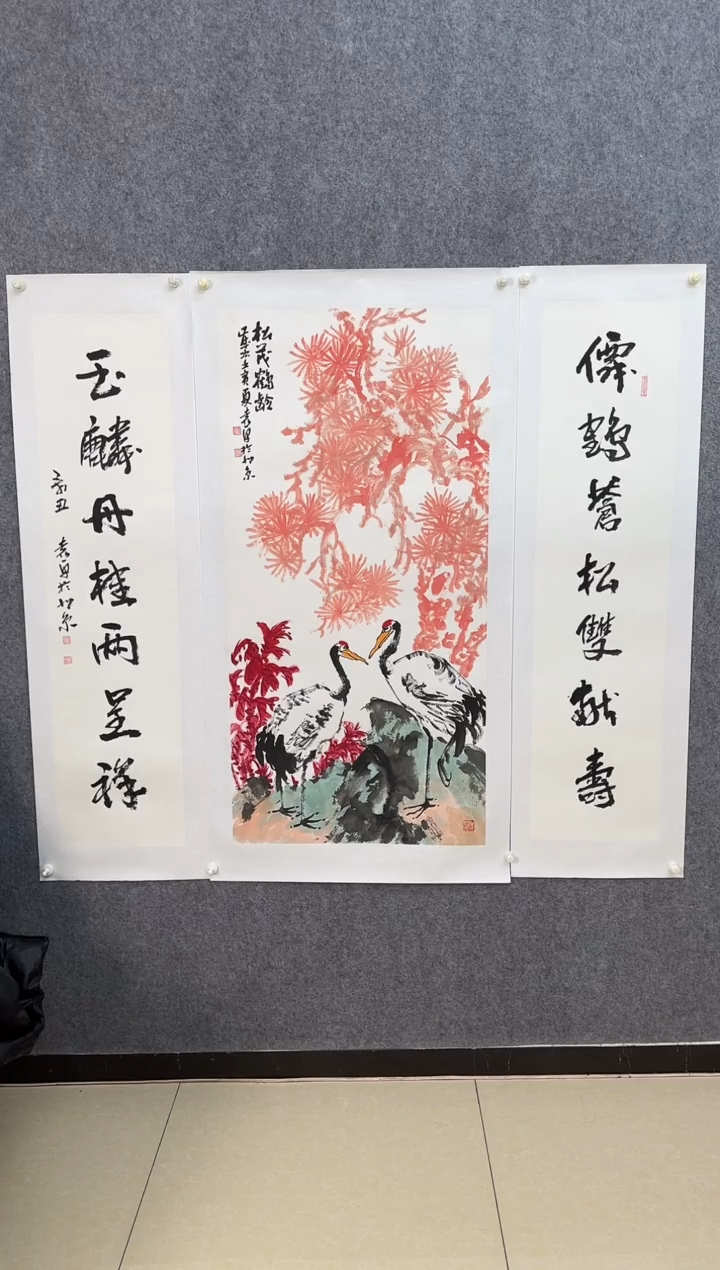 僊鶴蒼松雙献壽
松茂鶴齡
玉麟丹桂兩呈祥
辛丑